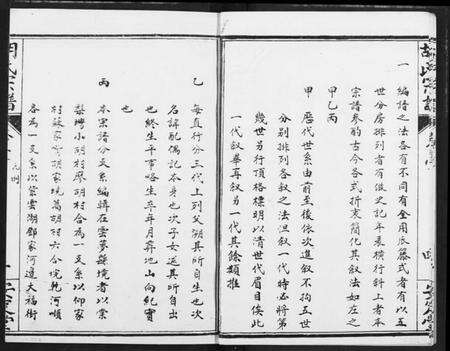 一 編譜之法各有不同有全用瓜藤式者有以五
世分房排列者有倣史記年表横行斜上者本
宗譜參酌古今各式折衷簡化其敘法如左之
甲乙丙
甲 歷代世系由前至後依次進叙不拘五世
分別排列各叙之法但叙一代時必將第
幾世另行頂格標明以清世代眉目俟此
一代叙畢再叙另一代其餘類推
乙 每直行分三代上列父溯其所自生也次
名諱配偶記本身也次子女逞其所自出
也終生平事略生卒年月葬地山向紀實
也
丙 本宗譜分支系編輯在雲夢縣境者以棠
梨埤小胡村廖胡村合為一支系以仰家
村蘇家寄胡家境萬胡村六合境乾河順
各為一支系以紫雲湖鄧家河道大福街